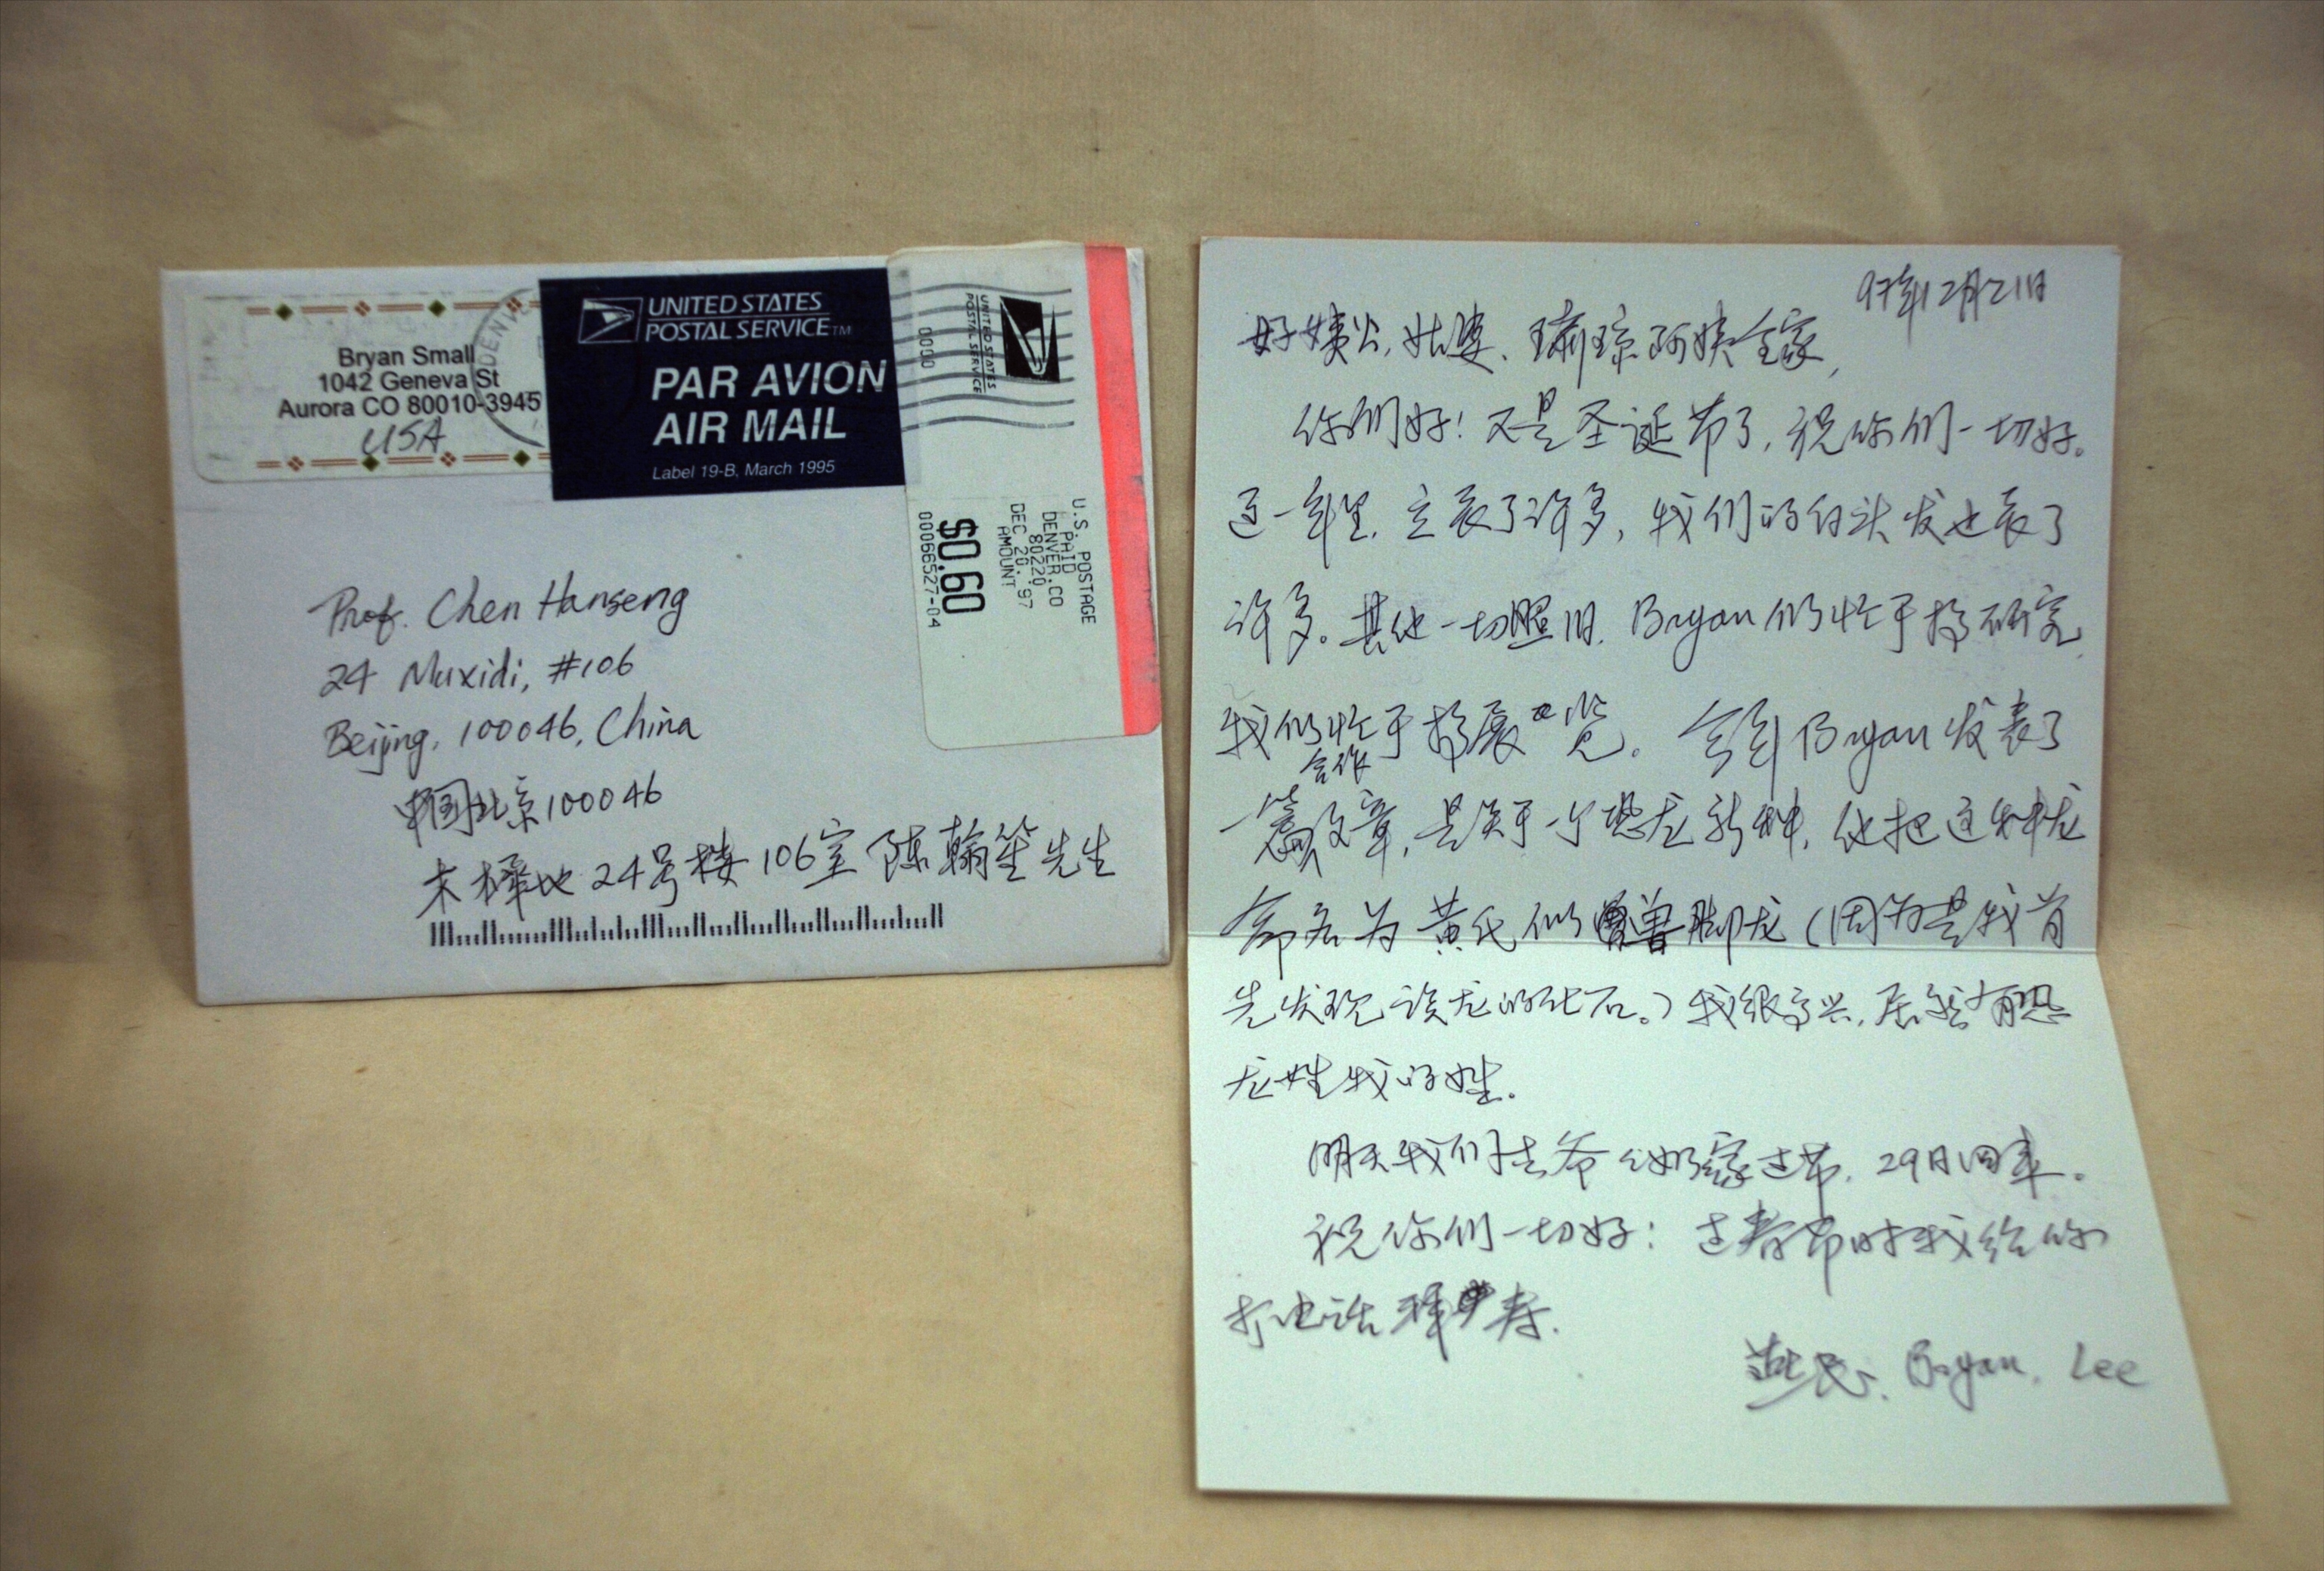 Bryan Small
1042 Geneva St
Aurora CO 80010-3945
USA
UNITED STATES
POSTAL SERVICE™
PAR AVION
AIR MAIL
Label 19-B, March 1995
UNITED STATES
POSTAL SERVICE
0000
U.S. POSTAGE
PAID
DENVER.CO
80220
DEC 20.'97
AMOUNT
$0.60
00066527-04
Prof. Chen Hanseng
24 Muxidi, #106
Beijing, 100046, China
中国北京100046
木樨地24号楼106室 陈翰笙先生
97年12月21日
好姨公, 姑婆、琼阿姨全家,
你们好! 又是圣诞节了, 祝你们一切好。
这一年里, 立长了许多, 我们的白头发也长了
许多。其他一切照旧. Bryan仍忙于搞研究,
我仍忙于搞展览。今年Bryan发表了
合作
一篇文章, 是关于一个恐龙新种, 他把这种龙
命名为黄氏似兽脚龙(因为是我首
先发现该龙的化石。) 我很高兴, 居然有恐
龙姓我的姓.
明天我们去爷奶家过节. 29日回来.
祝你们一切好! 过春节时我给你
打电话拜寿.
燕民. Bryan. Lee